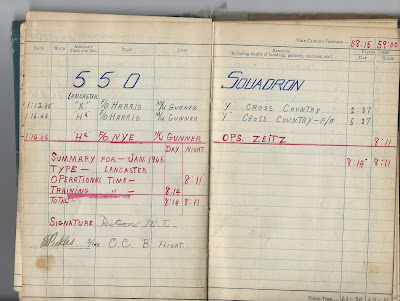 TIME CARRIED FORWARD:— 58.15 59.00
DATE HOUR AIRCRAFT TYPE AND NO. PILOT DUTY REMARKS DAY NIGHT
(including results of bombing, gunnery, exercises, etc.)
550 SQUADRON
LANCASTER
"X" F/O HARRIS M/U GUNNER "Y" CROSS COUNTRY 2:37
H² F/O HARRIS M/U GUNNER "Y" CROSS COUNTRY - F/A 5:37
H² F/O NYE M/U GUNNER OPS. ZEITZ 8:11
DAY NIGHT
SUMMARY FOR — JAN 1945 8:14 8:11
TYPE — LANCASTER
OPERATIONAL TIME — 8:11
TRAINING " — 8:14
TOTAL — 8:14 8:11
SIGNATURE
O.C. B. FLIGHT.
TOTAL TIME